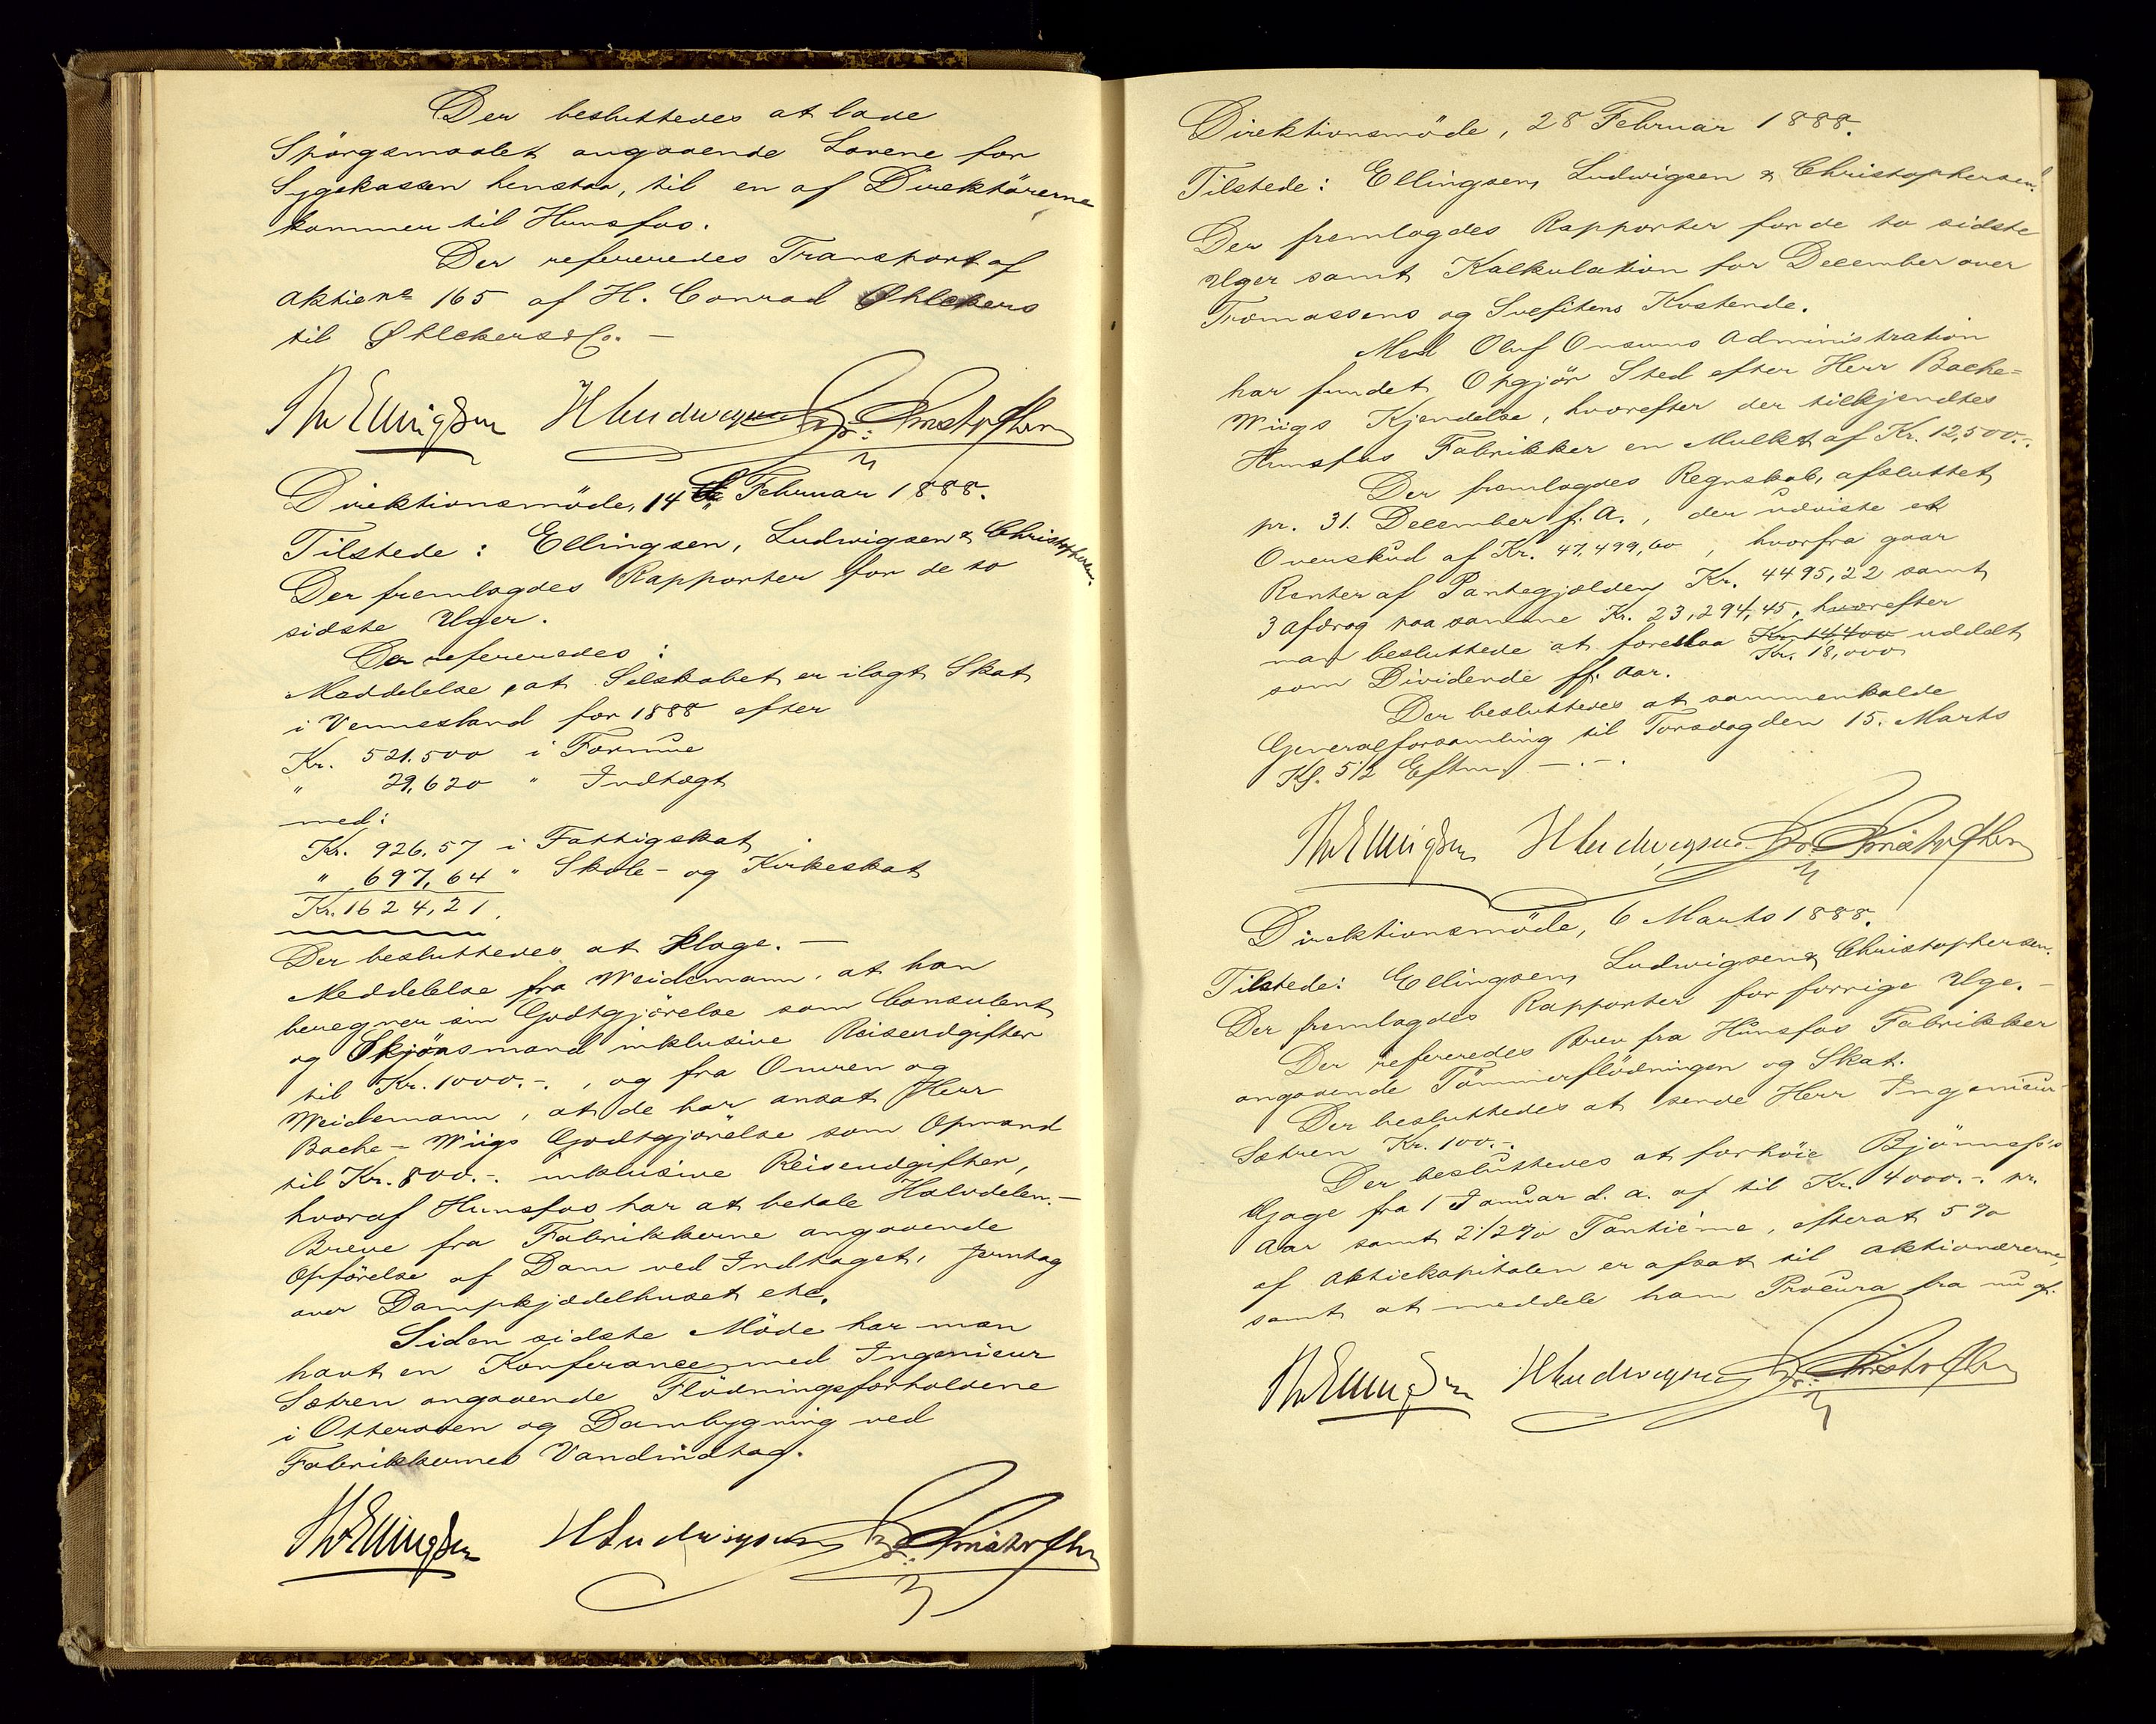 Der besluttedes at lade
Spörgsmaalet angaaende Lovene for
Sygekassen henstaa, til en af Direktörerne
kommer til Hunsfos.
Der refereredes Transport af
Aktie No 165 af H. Conrad Øhlckers
til Øhlckers & Co. —
Th Ellingsen HLudwigsen Chr. Christophersen
Direktionsmöde, 14 Februar 1888.
Tilstede: Ellingsen, Ludwigsen & Christophersen.
Der fremlagdes Rapporter for de to
sidste Uger.
Der refereredes:
Meddelelse, at Selskabet er ilagt Skat
i Vennesland for 1888 efter
Kr. 521.500 i Formue
" 29.620 " Indtægt
med:
Kr. 926,57 i Fattigskat
" 697,64 " Skole- og Kirkeskat
Kr. 1624,21.
Der besluttedes at klage. —
Meddelelse fra Weidemann, at han
beregner sin Godtgjörelse som Consulent
og Skjönsmand inklusive Reiseudgifter
til Kr. 1000.-, og fra Onuren og
Weidemann, at de har ansat Herr
Bache-Wiigs Godtgjörelse som Opmand
til Kr. 800.-. inklusive Reiseudgifter,
hvoraf Hunsfos har at betale Halvdelen. —
Breve fra Fabrikkerne angaaende
Opförelse af Dam ved Indtaget, Jerntag
over Dampkjædelhuset etc.
Siden sidste Möde har man
havt en Konferance med Ingenieur
Sætren angaaende Flödningsforholdene
i Otteraaen og Dambygning ved
Fabrikkernes Vandindtag.
Th Ellingsen HLudwigsen Chr. Christophersen
Direktionsmöde, 28 Februar 1888.
Tilstede: Ellingsen, Ludwigsen & Christophersen.
Der fremlagdes Rapporter for de to sidste
Uger samt Kalkulation for December over
Træmassens og Svefitens Kostende.
Med Oluf Onsums Administration
har fundet Opgjör Sted efter Herr Bache-
Wiigs Kjendelse, hvorefter der tilkjendtes
Hunsfos Fabrikker en Mulkt af Kr. 12,500.-.
Der fremlagdes Regnskab, afsluttet
pr. 31. December f. A., der udviste et
Overskud af Kr. 47,499,60, hvorfra gaar
Renter af Pantegjælden Kr. 4495,22 samt
3 Afdrag paa samme Kr. 23,294,45, hvorefter
man besluttede at foreslaa Kr. 14,400 uddelt
Kr. 18,000
som Dividende ff. Aar.
Der besluttedes at sammenkalde
Generalforsamling til Torsdag den 15. Marts
Kl. 5 1/2 Eftm. —.—.
Th Ellingsen HLudwigsen Chr. Christophersen
Direktionsmöde, 6 Marts 1888.
Tilstede: Ellingsen, Ludwigsen & Christophersen.
Der fremlagdes Rapporter for forrige Uge. —
Der refereredes Brev fra Hunsfos Fabrikker
angaaende Tömmerflödningen og Skat.
Der besluttedes at sende Herr Ingenieur
Sætren Kr. 100.-.
Der besluttedes at forhöie Bjönness's
Gage fra 1 Januar d. a. af til Kr. 4000.-. pr.
Aar samt 2 1/2 % Tantième, efterat 5 %
af Aktiekapitalen er afsat til Aktionærerne,
samt at meddele ham Procura fra nu af.
Th Ellingsen HLudwigsen Chr. Christophersen